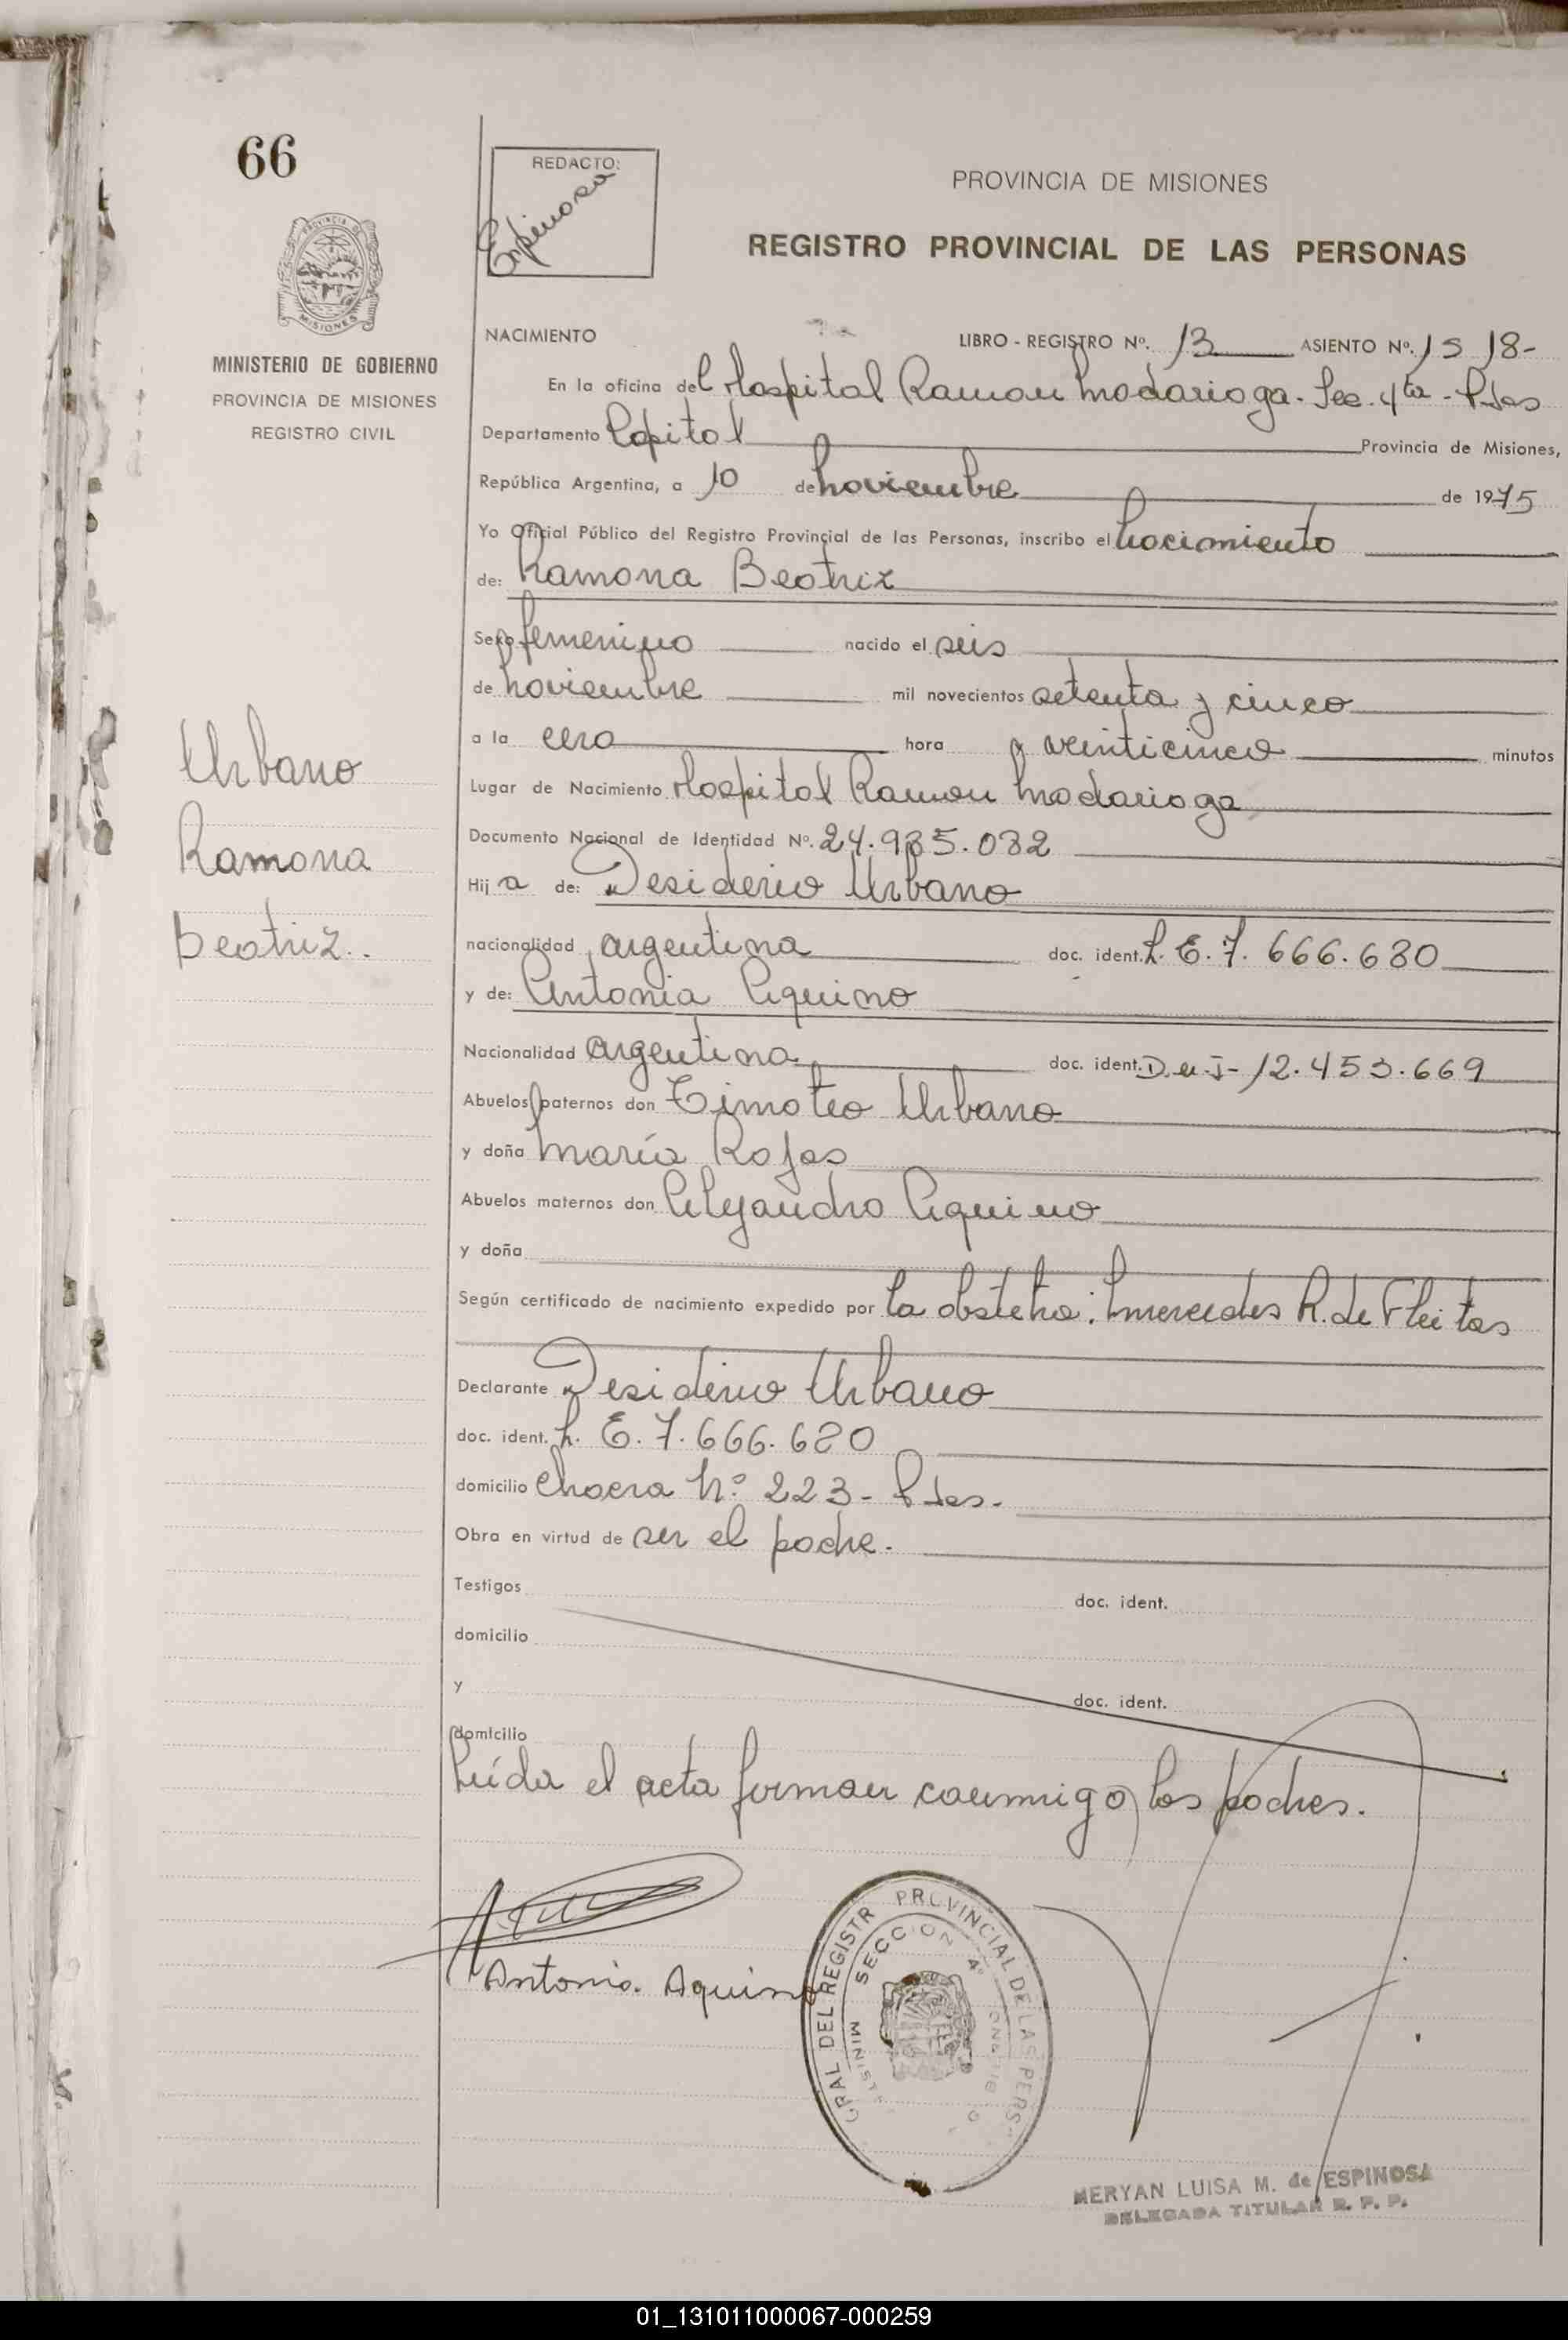 66
REDACTO:
Espinosa
PROVINCIA DE MISIONES
REGISTRO PROVINCIAL DE LAS PERSONAS
MINISTERIO DE GOBIERNO
PROVINCIA DE MISIONES
REGISTRO CIVIL
NACIMIENTO LIBRO - REGISTRO Nº. 13 ASIENTO Nº. 1518-
En la oficina del Hospital Ramon Madariaga - Sec. 4ta - Pdas
Departamento Capital Provincia de Misiones,
República Argentina, a 10 de noviembre de 1975
Yo Oficial Público del Registro Provincial de las Personas, inscribo el nacimiento
de: Ramona Beatriz
Sexo femenino nacido el seis
de noviembre mil novecientos setenta y cinco
a la cero hora y veinticinco minutos
Urbano
Ramona
Beatriz..
Lugar de Nacimiento Hospital Ramon Madariaga
Documento Nacional de Identidad Nº. 24.985.082
Hija de: Desiderio Urbano
nacionalidad argentina doc. ident. L. E. 7. 666.680
y de: Antonia Aquino
Nacionalidad argentina doc. ident. D.N.I- 12.453.669
Abuelos paternos don Timoteo Urbano
y doña María Rojas
Abuelos maternos don Alejandro Aquino
y doña
Según certificado de nacimiento expedido por la obstetra: Mercedes R. de Fleitas
Declarante Desiderio Urbano
doc. ident. L. E. 7. 666. 680
domicilio Chacra Nº 223 - Pdas.
Obra en virtud de ser el padre.
Testigos doc. ident.
domicilio
y doc. ident.
domicilio
Leída el acta firman conmigo los padres.
Antonia. Aquino
GRAL DEL REGISTR PROVINCIAL DE LAS PERS
SECCION 4ª
MERYAN LUISA M. de ESPINOSA
DELEGADA TITULAR R. P. P.
01_131011000067-000259